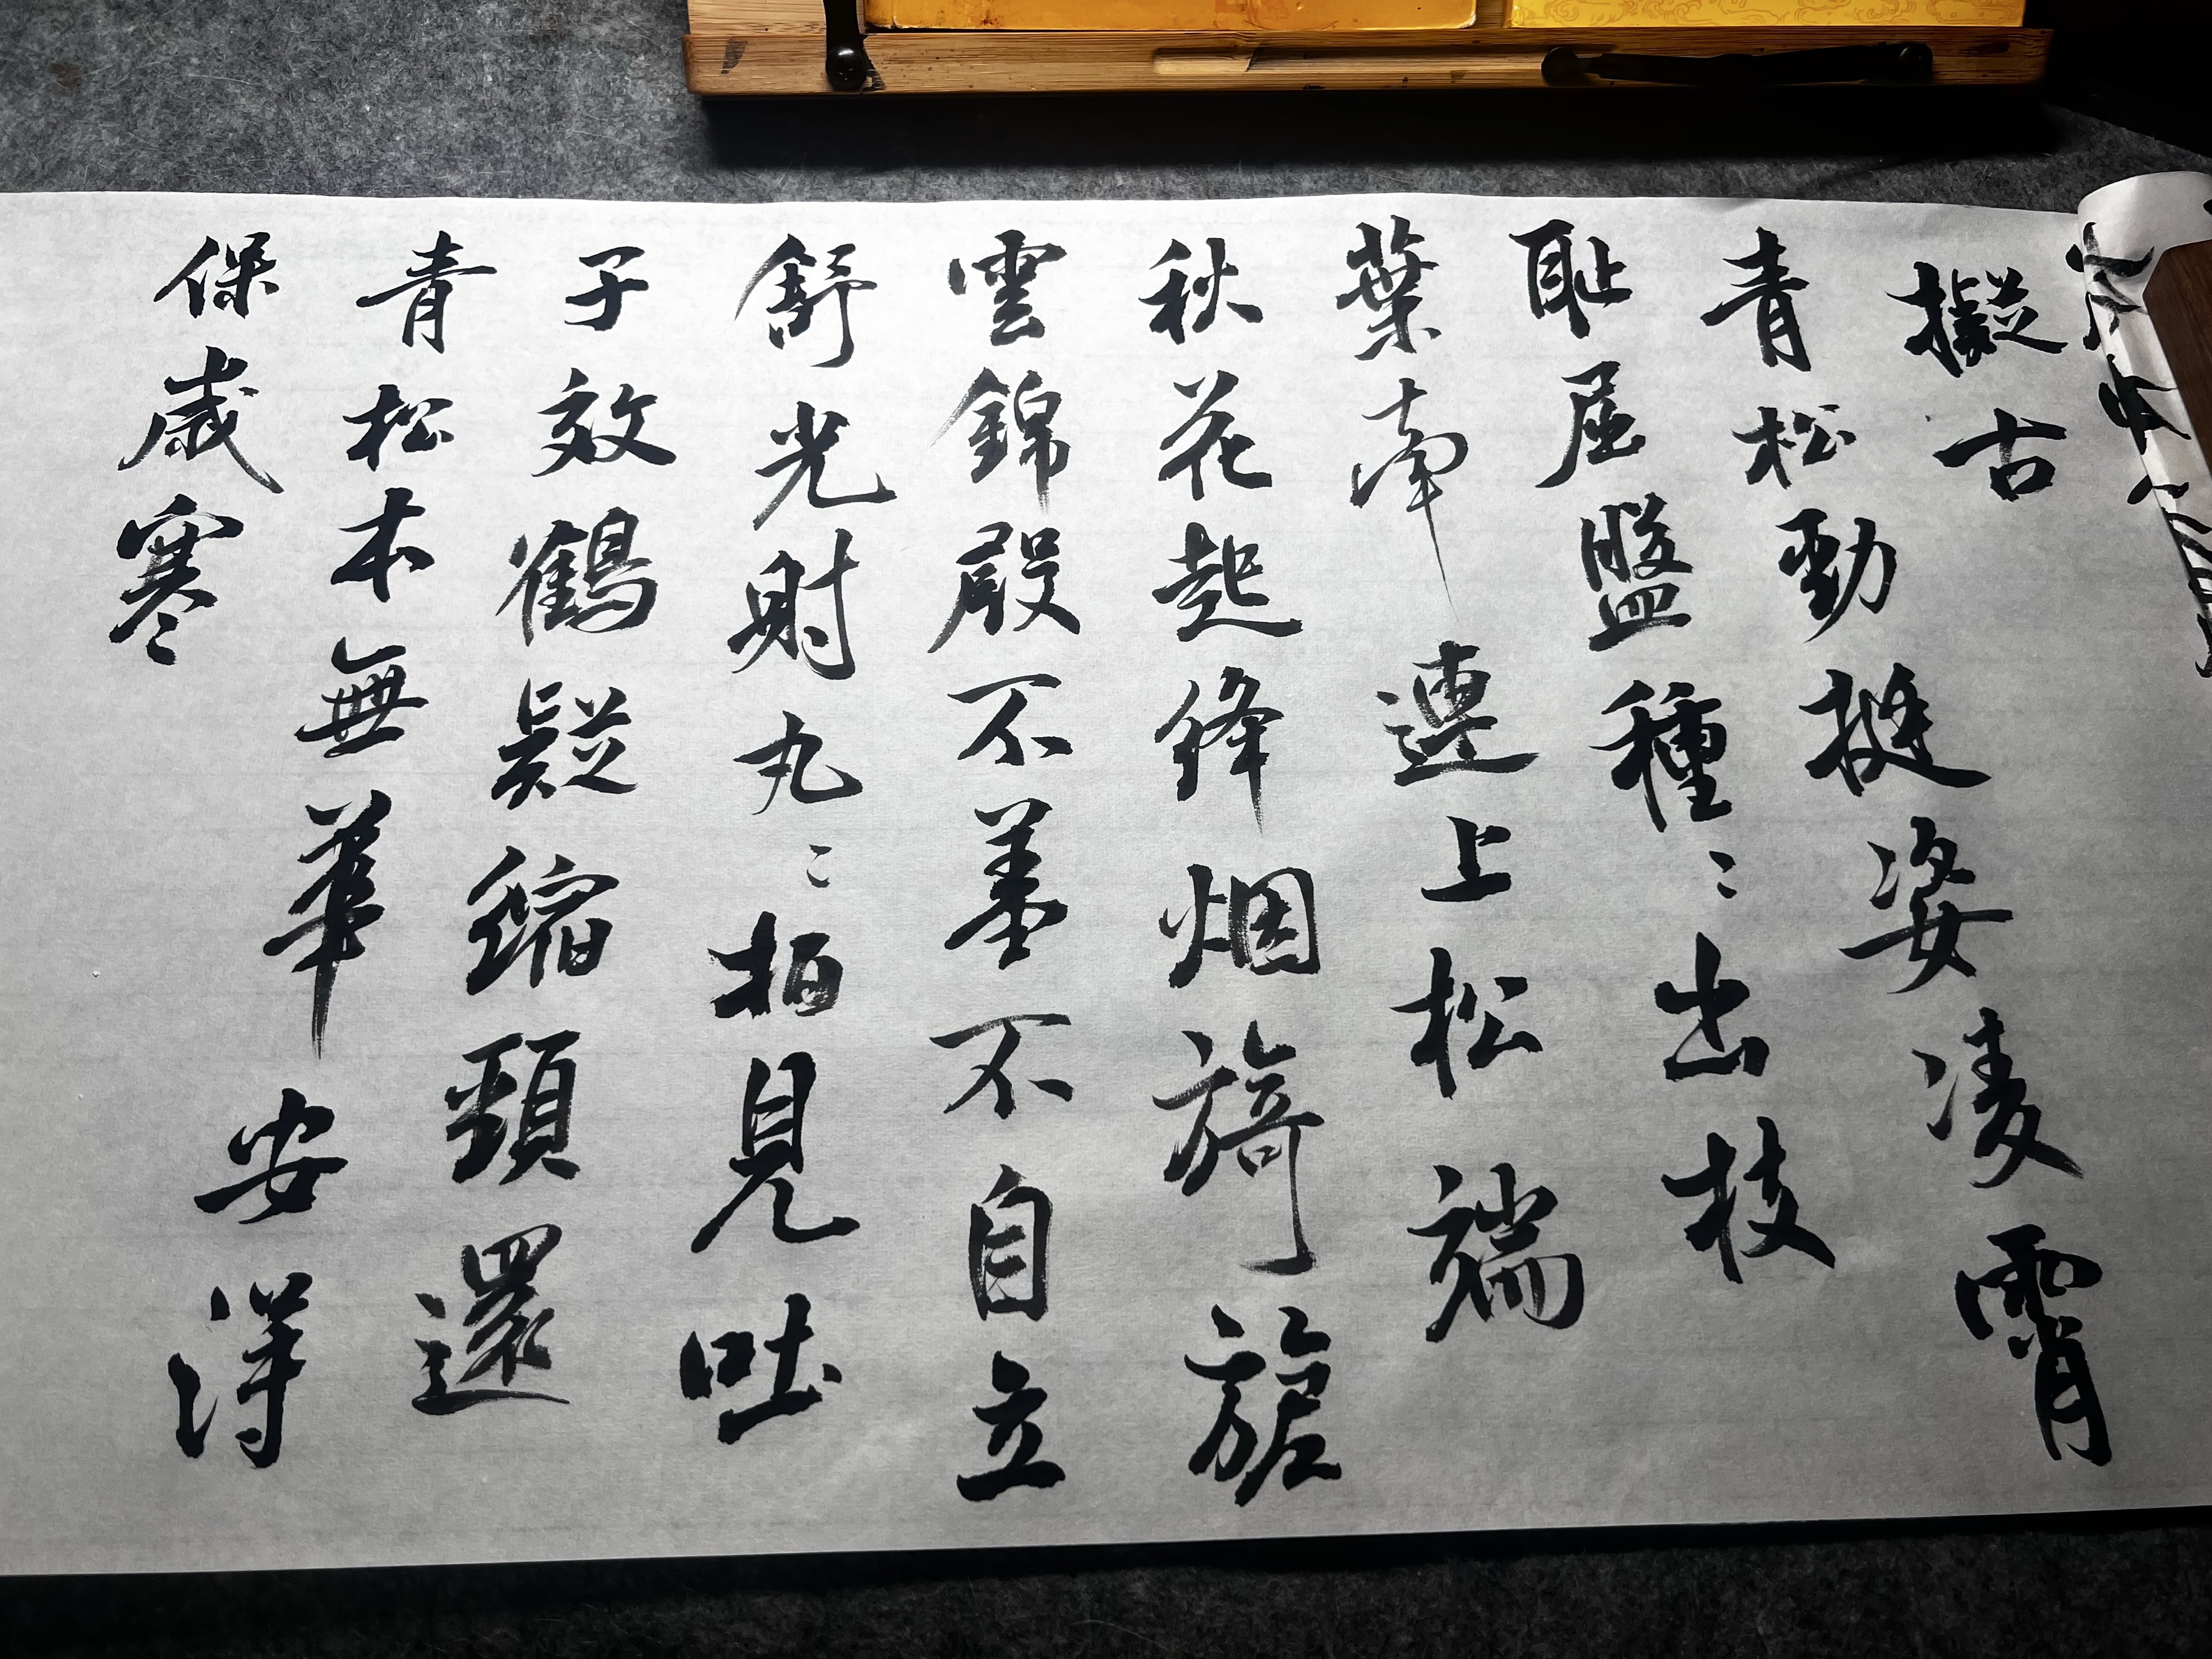 擬古
青松勁挺姿凌霄
耻屈盤種〻出枝
葉牽連上松端
秋花起絳烟旖旎
雲錦殿不羞不自立
舒光射丸〻栢見吐
子效鶴疑縮頸還
青松本無華安得
保歲寒